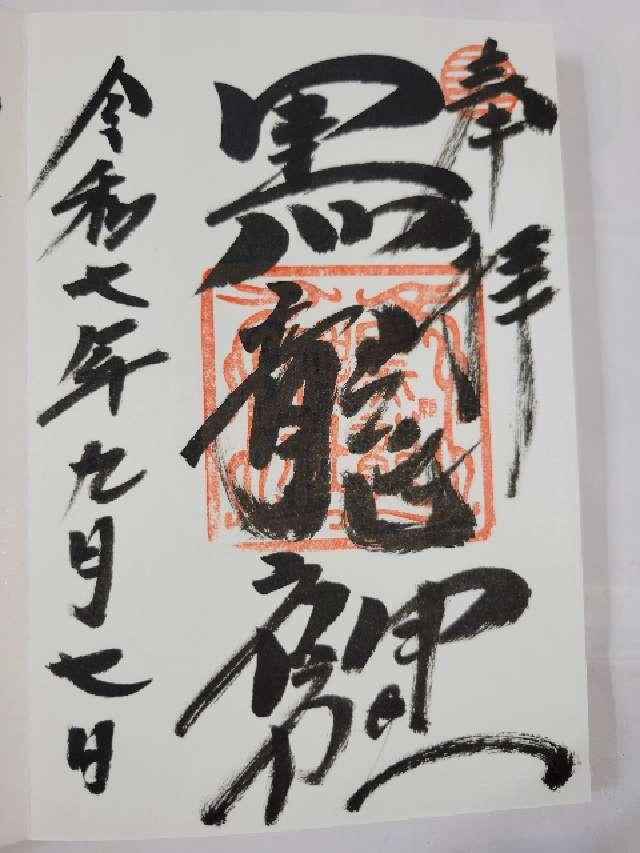 奉拝
黒龍
令和七年九月七日